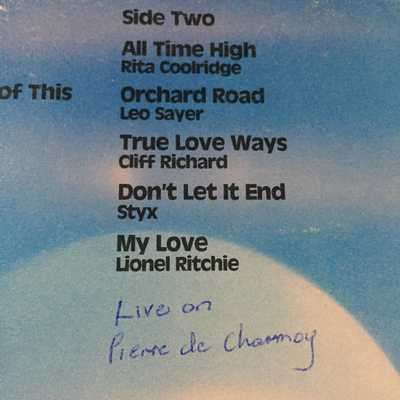 Side Two
All Time High
Rita Coolridge
of This
Orchard Road
Leo Sayer
True Love Ways
Cliff Richard
Don't Let It End
Styx
My Love
Lionel Ritchie
Live on
Pierre de Charmoy